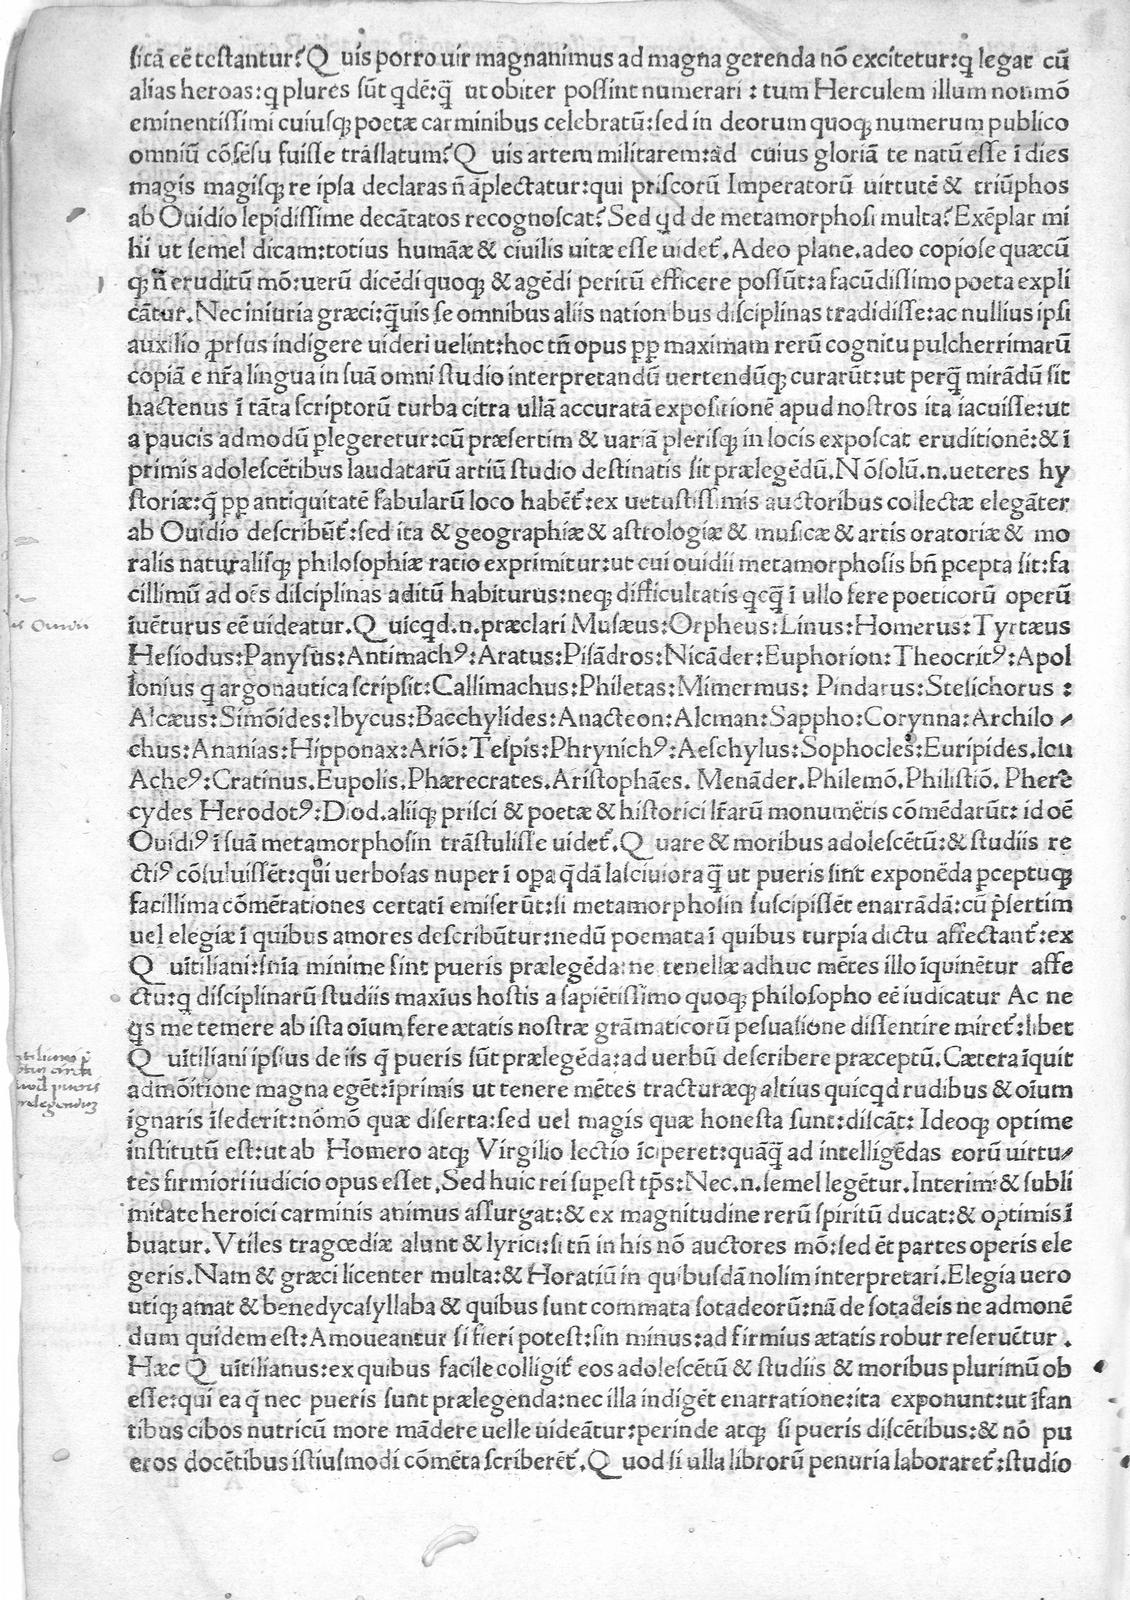 sicā eē testantur? Quis porro uir magnanimus ad magna gerenda nō excitetur:q̄ legat cū
alias heroas:q plures sūt qdē:q̄ ut obiter possint numerari : tum Herculem illum non mō
eminentissimi cuiusq; poetæ carminibus celebratū:sed in deorum quoq; numerum publico
omniū cōsēsu fuisse trāslatum? Quis artem militarem:ad cuius gloriā te natū esse ī dies
magis magisq; re ipsa declaras ñ āplectatur:qui priscorū Imperatorū uirtutē & triūphos
ab Ouidio lepidissime decātatos recognoscat? Sed qd de metamorphosi multa? Exēplar mi
hi ut semel dicam:totius humāæ & ciuilis uitæ esse uidet᷑. Adeo plane.adeo copiose quæcū
q; ñ eruditū mō:uerū dicēdi quoq; & agēdi peritū efficere possūt:a facūdissimo poeta expli
cātur. Nec iniuria græci:q̄uis se omnibus aliis nationibus disciplinas tradidisse:ac nullius ipsi
auxilio ꝓrsus indigere uideri uelint:hoc tñ opus ꝓp maximam rerū cognitu pulcherrimarū
copiā e nr̄a lingua in suā omni studio interpretandū uertendūq; curarūt:ut perq̄ mirādū sit
hactenus ī tāta scriptorū turba citra ullā accuratā expositionē apud nostros ita iacuisse:ut
a paucis admodū plegeretur:cū præsertim & uariā plerisq; in locis exposcat eruditionē:& ī
primis adolescētibus laudatarū artiū studio destinatis sit prælegēdū. Nō solū.n.ueteres hy
storiæ:q̄ ꝓp antiquitatē fabularū loco habēt᷑:ex uetustissimis auctoribus collectæ elegāter
ab Ouidio describūt᷑:sed ita & geographiæ & astrologiæ & musicæ & artis oratoriæ & mo
ralis naturalisq; philosophiæ ratio exprimitur:ut cui ouidii metamorphosis bñ pcepta sit:fa
cillimū ad oēs disciplinas aditū habiturus:neq; difficultatis qcq̄ ī ullo fere poeticorū operū
īuēturus eē uideatur. Quicqd.n.præclari Musæus:Orpheus:Linus:Homerus:Tyrtæus
Hesiodus:Panysus:Antimachꝰ:Aratus:Pisādros:Nicāder:Euphorion:Theocritꝰ:Apol
lonius q argonautica scripsit:Callimachus:Philetas:Mimermus: Pindarus:Stesichorus :
Alcæus:Simōides:Ibycus:Bacchylides:Anacteon:Alcman:Sappho:Corynna:Archilo-
chus:Ananias:Hipponax:Ariō:Tespis:Phrynichꝰ:Aeschylus:Sophocles:Euripides.Ion
Acheꝰ:Cratinus.Eupolis.Phærecrates.Aristophāes. Menāder.Philemō.Philistiō. Phere
cydes Herodotꝰ:Diod.aliiq; prisci & poetæ & historici lr̄arū monumētis cōmēdarūt: id oē
Ouidiꝰ ī suā metamorphosin trāstulisse uidet᷑. Quare & moribus adolescētū:& studiis re
ctiꝰ cōsuluissēt:qui uerbosas nuper ī opa q̄dā lasciuiora q̄ ut pueris sint exponēda pceptuq;
facillima cōmētationes certati emiserūt:si metamorphosin suscipissēt enarrādā:cū p̄sertim
uel elegiæ ī quibus amores describūtur:nedū poemata ī quibus turpia dictu affectant᷑:ex
Quītiliani:snīa minime sint pueris prælegēda:ne tenellæ adhuc mētes illo īquinētur affe
ctu:q disciplinarū studiis maxīus hostis a sapiētissimo quoq; philosopho eē iudicatur Ac ne
qs me temere ab ista oīum fere ætatis nostræ grāmaticorū pesuasione dissentire miret᷑:libet
Quītiliani ipsius de iis q̄ pueris sūt prælegēda:ad uerbū describere præceptū. Cætera īquit
admōitione magna egēt:īprimis ut tenere mētes tracturæq; altius quicqd rudibus & oīum
ignaris īsederit:nō mō quæ diserta:sed uel magis quæ honesta sunt:discāt: Ideoq; optime
institutū est:ut ab Homero atq; Virgilio lectio īciperet:quāq̄ ad intelligēdas eorū uirtu-
tes firmiori iudicio opus esset. Sed huic rei supest tp̄s:Nec.n.semel legētur. Interim & subli
mitate heroici carminis animus assurgat:& ex magnitudine rerū spiritū ducat:& optimis ī
buatur. Vtiles tragœdiæ alunt & lyrici:si tñ in his nō auctores mō:sed ēt partes operis ele
geris. Nam & græci licenter multa:& Horatiū in quibusdā nolim interpretari. Elegia uero
utiq; amat & benedycasyllaba & quibus sunt commata sotadeorū:nā de sotadeis ne admonē
dum quidem est:Amoueantur si fieri potest:sin minus:ad firmius ætatis robur reseruētur .
Hæc Quītilianus:ex quibus facile colligit᷑ eos adolescētū & studiis & moribus plurimū ob
esse:qui ea q̄ nec pueris sunt prælegenda:nec illa indigēt enarratione:ita exponunt:ut īfan
tibus cibos nutricū more mādere uelle uideātur:perinde atq; si pueris discētibus:& nō pu
eros docētibus istiusmodi cōmēta scriberēt᷑. Quod si ulla librorū penuria laboraret᷑:studio